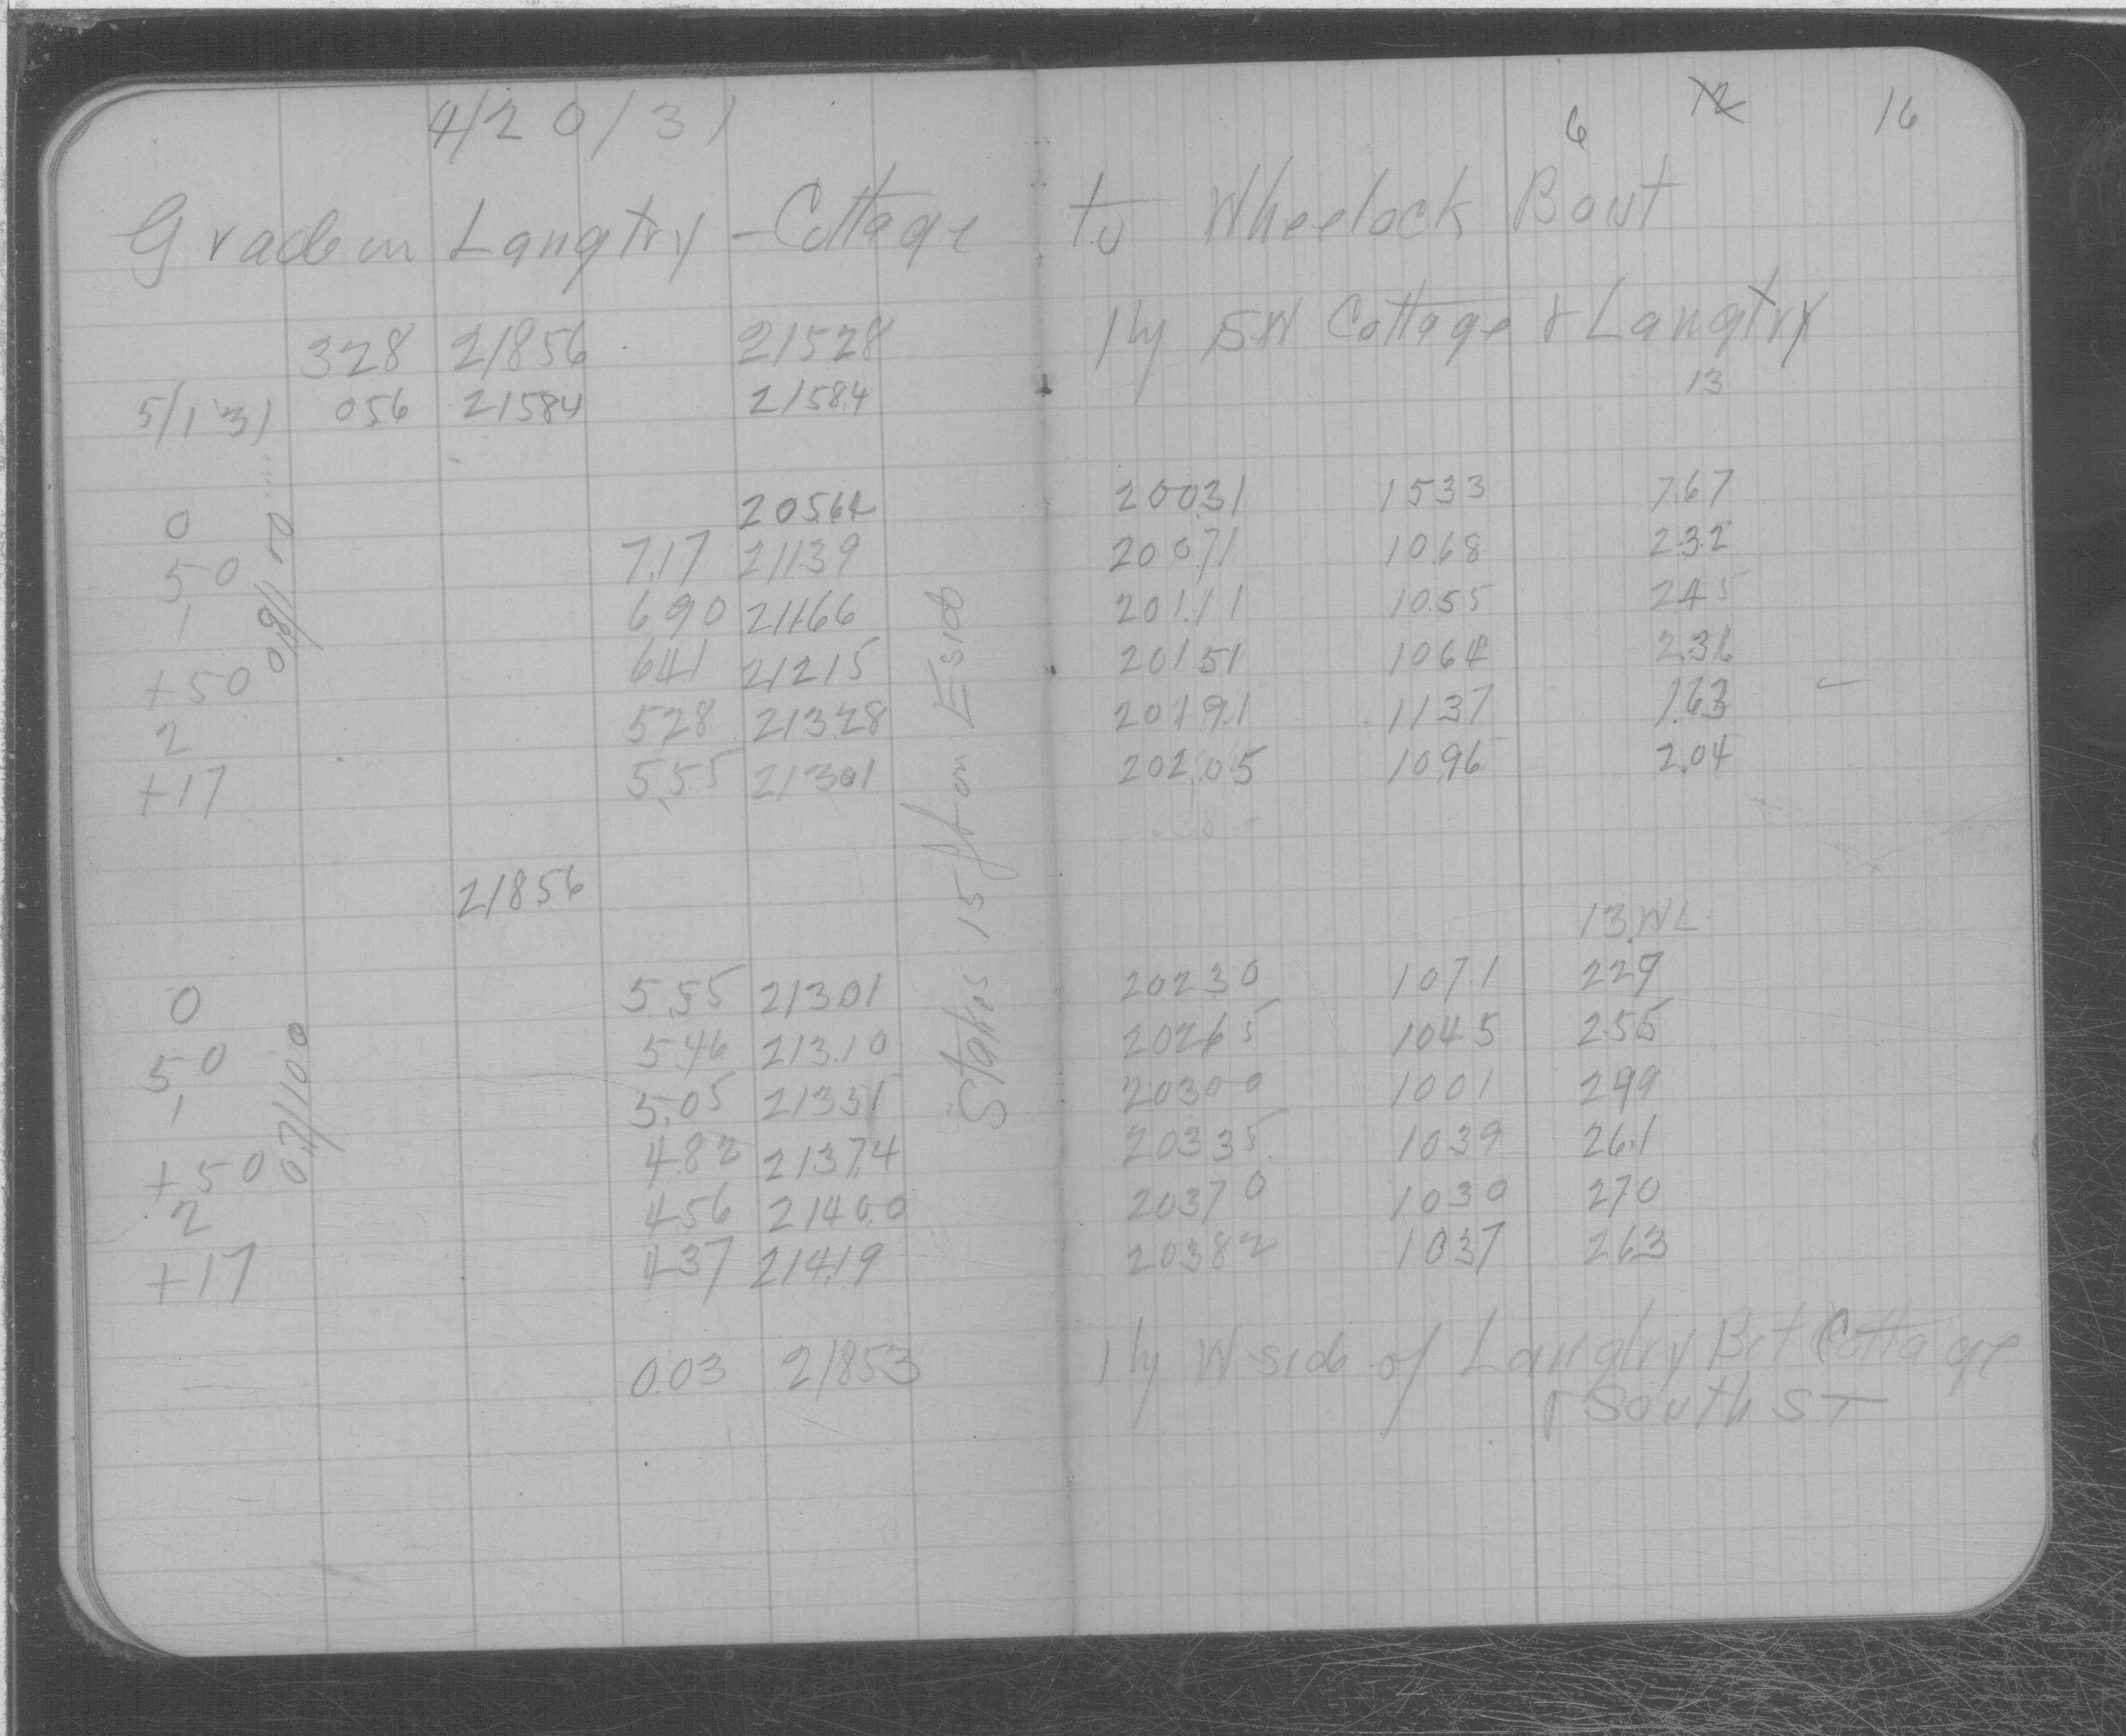 4/20/31 6 12 16
Grade on Langtry - Cottage to Wheelock Bout
328 21856 21528 1 hy SW Cottage & Langtry
5/1 31 056 21584 21584 13
0 20564 20031 1533 7.67
50 7.17 21139 20071 1068 232
1 690 21166 201.11 10.55 245
+50 641 21215 20151 1064 2.36
2 528 21328 20191 1137 1.63 -
+17 5.55 21301 202.05 1096 2.04
0.8/100
Stakes 15 ft on E side
21856
13 WL
0 555 21301 20230 1071 229
50 546 213.10 20265 1045 255
1 5.05 21351 20300 1001 299
+50 482 21374 20335 1039 26.1
2 456 21400 20370 1030 270
+17 437 21419 20382 1037 263
0.7/100
0.03 21853 1 hy W side of Langtry Bet Cottage
& South ST